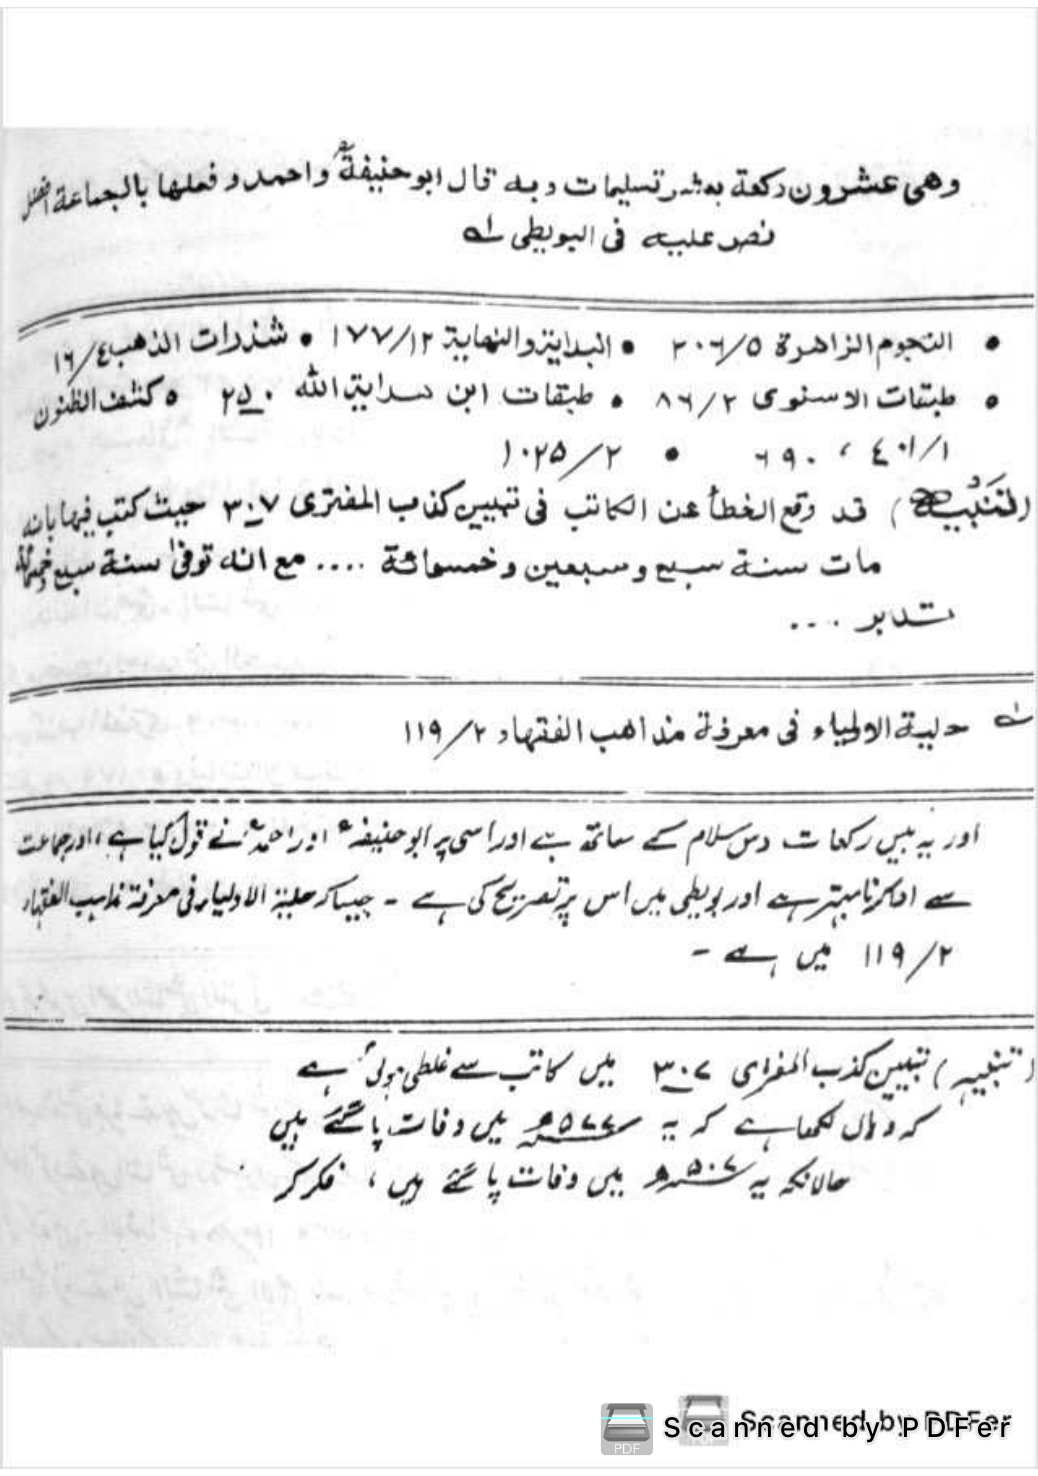 وهی عشرون رکعة بعشر تسلیمات و به قال ابو حنیفةؒ و احمد و فعلها بالجماعة افضل
نص علیه فی البویطی ؎
• النجوم الزاهرة ٢٠٦/٥ • البدایة والنهایة ١٧٧/١٢ • شذرات الذهب ١٦/٤
• طبقات الاسنوی ٨٦/٢ • طبقات ابن هدایة الله ٢٥٠ • کشف الظنون
٤٠١/١ ، ٦٩٠ • ١٠٢٥/٢
(التنبیه) قد وقع الخطأ عن الکاتب فی تبیین کذب المفتری ٣٠٧ حیث کتب فیها بانه
مات سنة سبع و سبعین و خمسمائة .... مع انه توفی سنة سبع و خمسمائة
تدبر ...
؎ حلیة الاولیاء فی معرفة مذاهب الفقهاء ١١٩/٢
اور یہ بیس رکعات دس سلام کے ساتھ ہے اور اسی پر ابو حنیفہؒ اور احمدؒ نے قول کیا ہے ، اور جماعت
سے ادا کرنا بہتر ہے اور بویطی میں اس پر تصریح کی ہے ۔ جیسا کہ حلیۃ الاولیاء فی معرفۃ مذاہب الفقہاء
١١٩/٢ میں ہے ۔
(تنبیہ) تبیین کذب المفتری ٣٠٧ میں کاتب سے غلطی ہوئی ہے
کہ وہاں لکھا ہے کہ یہ ۵۷۷ھ میں وفات پا گئے ہیں
حالانکہ یہ ۵۰۷ھ میں وفات پا گئے ہیں ، فکر کر
Scanned by PDFer
Scanned by PDFer